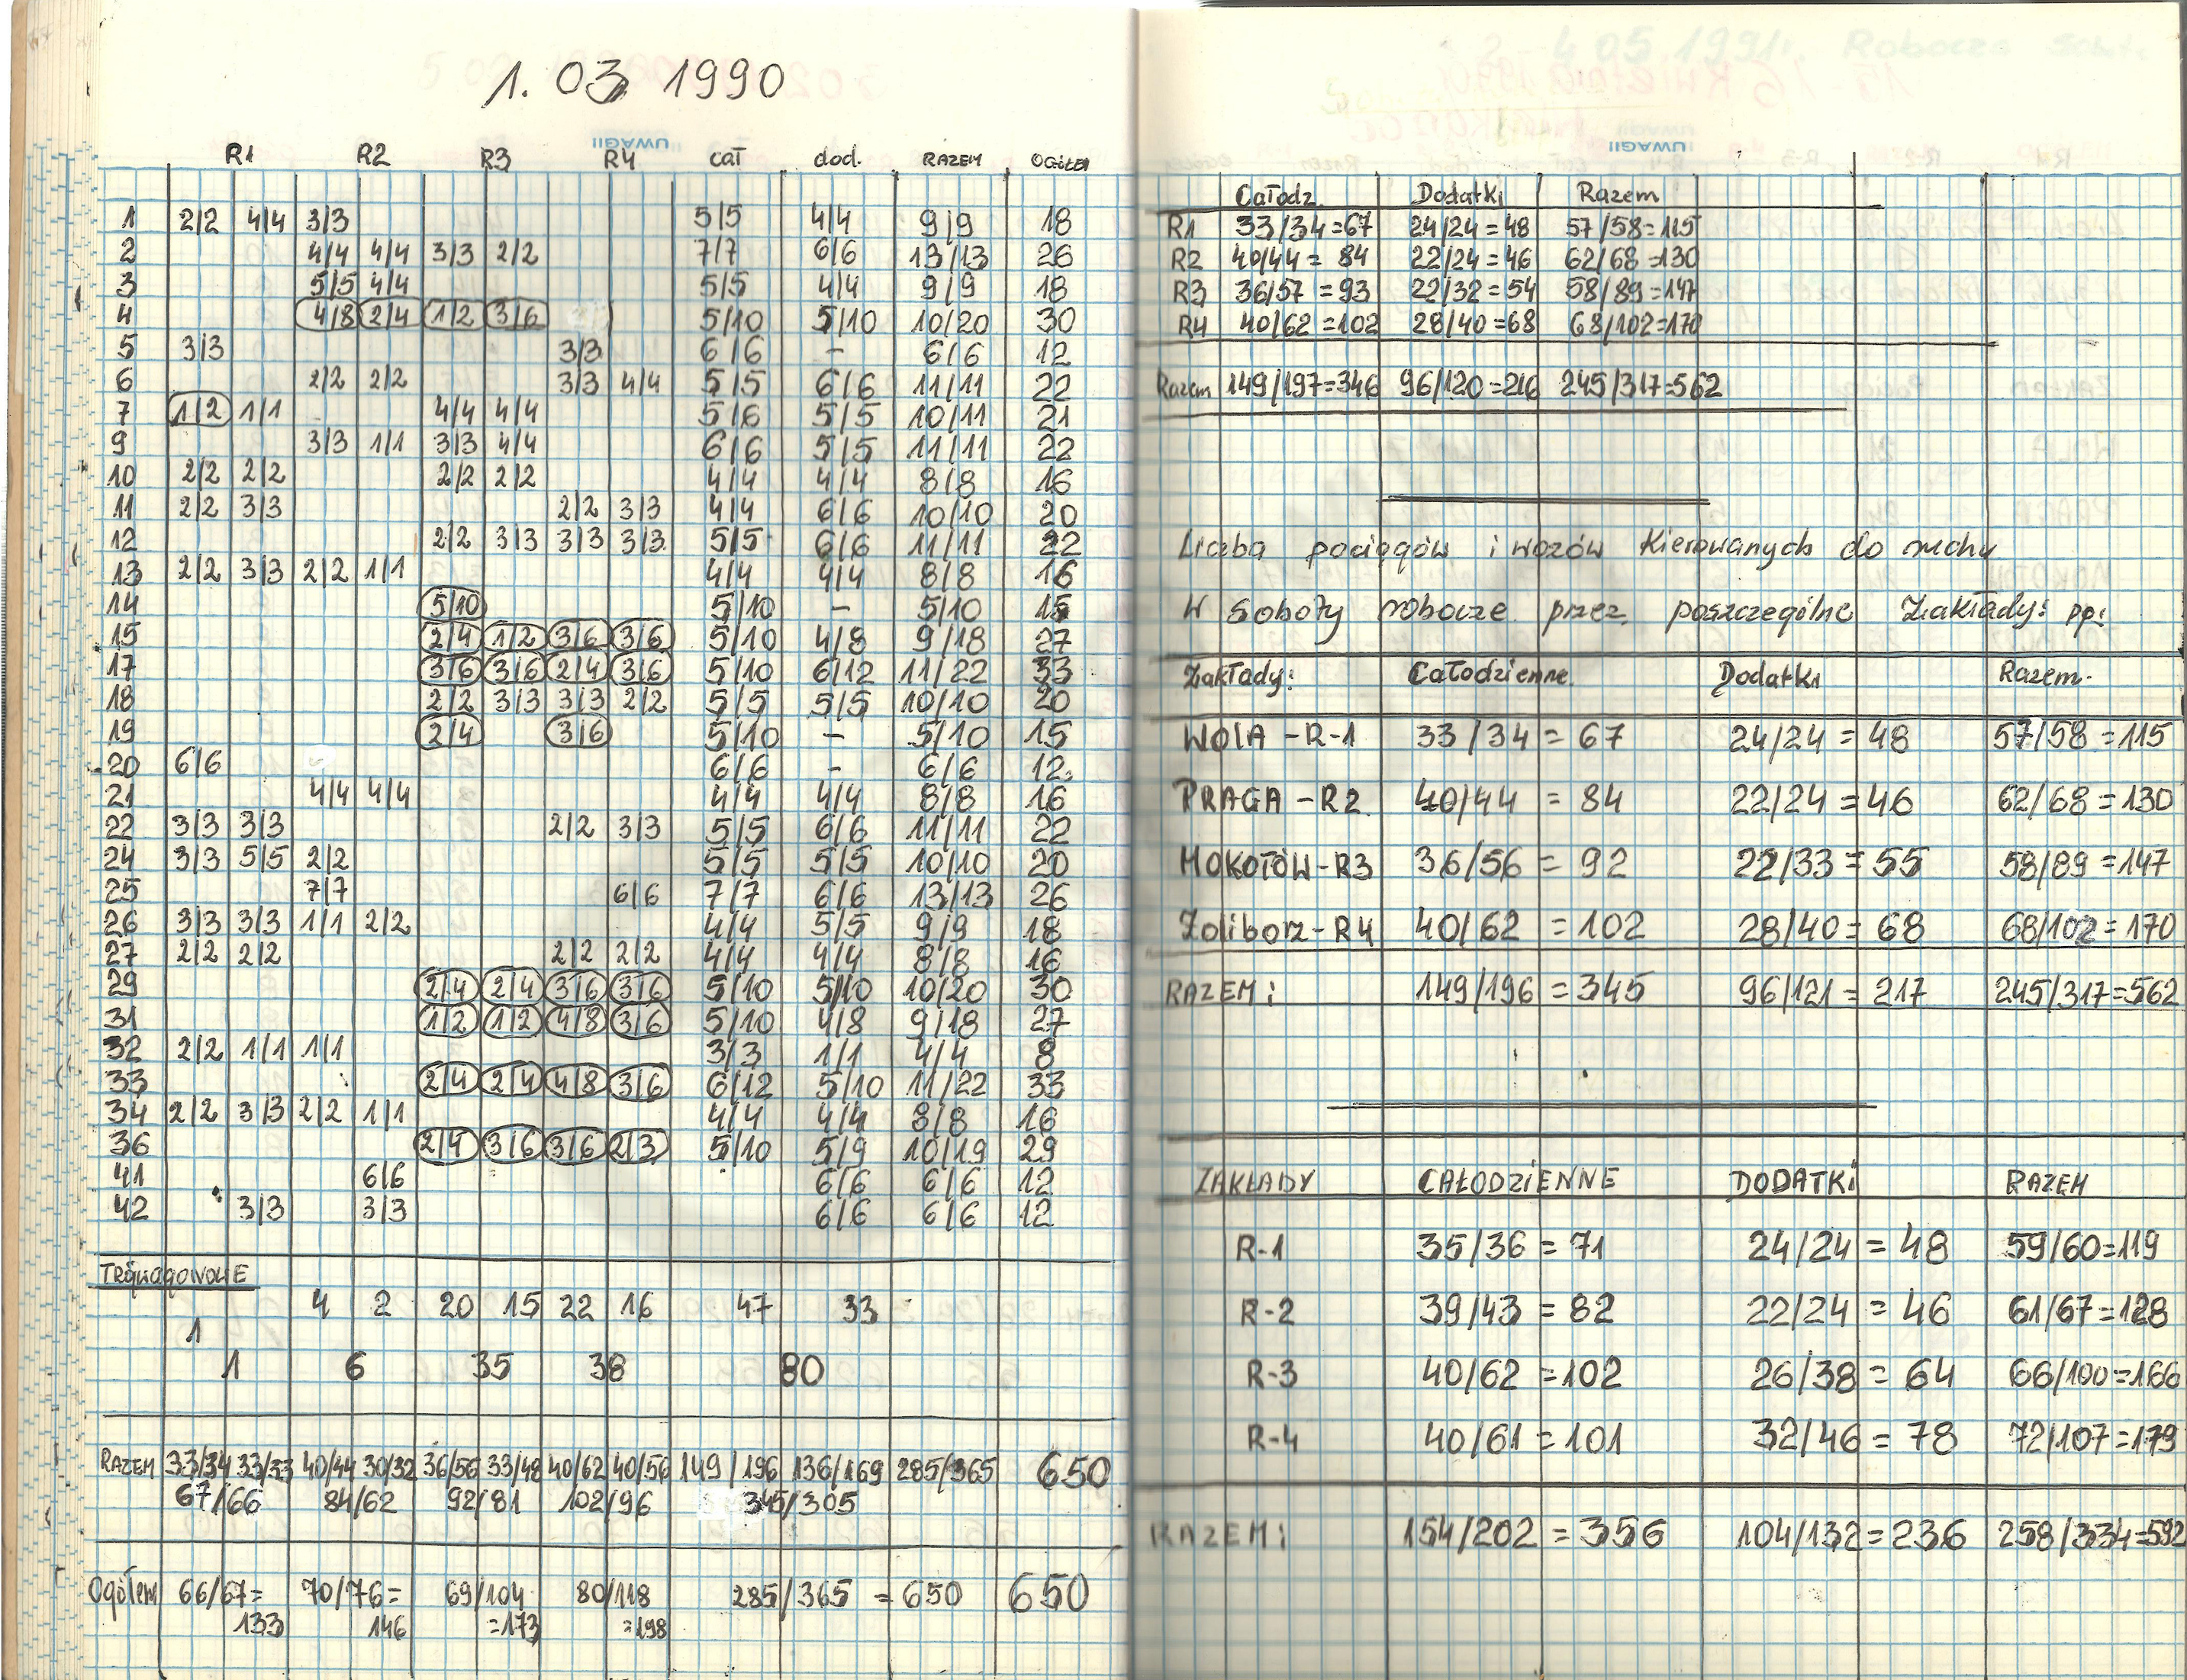 1. 03 1990
R1 R2 R3 R4 cał dod. RAZEM OGÓŁEM
1 2/2 4/4 3/3 5/5 4/4 9/9 18
2 4/4 4/4 3/3 2/2 7/7 6/6 13/13 26
3 5/5 4/4 5/5 4/4 9/9 18
4 4/8 2/4 1/2 3/6 5/10 5/10 10/20 30
5 3/3 3/3 6/6 - 6/6 12
6 2/2 2/2 3/3 4/4 5/5 6/6 11/11 22
7 1/2 1/1 4/4 4/4 5/6 5/5 10/11 21
9 3/3 1/1 3/3 4/4 6/6 5/5 11/11 22
10 2/2 2/2 2/2 2/2 4/4 4/4 8/8 16
11 2/2 3/3 2/2 3/3 4/4 6/6 10/10 20
12 2/2 3/3 3/3 3/3 5/5 6/6 11/11 22
13 2/2 3/3 2/2 1/1 4/4 4/4 8/8 16
14 5/10 5/10 - 5/10 15
15 2/4 1/2 3/6 3/6 5/10 4/8 9/18 27
17 3/6 3/6 2/4 3/6 5/10 6/12 11/22 33
18 2/2 3/3 3/3 2/2 5/5 5/5 10/10 20
19 2/4 3/6 5/10 - 5/10 15
20 6/6 6/6 - 6/6 12
21 4/4 4/4 4/4 4/4 8/8 16
22 3/3 3/3 2/2 3/3 5/5 6/6 11/11 22
24 3/3 5/5 2/2 5/5 5/5 10/10 20
25 7/7 6/6 7/7 6/6 13/13 26
26 3/3 3/3 1/1 2/2 4/4 5/5 9/9 18
27 2/2 2/2 2/2 2/2 4/4 4/4 8/8 16
29 2/4 2/4 3/6 3/6 5/10 5/10 10/20 30
31 1/2 1/2 4/8 3/6 5/10 4/8 9/18 27
32 2/2 1/1 1/1 3/3 1/1 4/4 8
33 2/4 2/4 4/8 3/6 6/12 5/10 11/22 33
34 2/2 3/3 2/2 1/1 4/4 4/4 8/8 16
36 2/4 3/6 3/6 2/3 5/10 5/9 10/19 29
41 6/6 6/6 6/6 12
42 3/3 3/3 6/6 6/6 12
4 2 20 15 22 16 47 33
1
1 6 35 38 80
RAZEM 33/34 33/33 40/44 30/32 36/56 33/48 40/62 40/56 149/196 136/169 285/365 650
67/66 84/62 92/81 102/96 345/305
Ogółem 66/67= 70/76= 69/104 80/118 285/365 = 650 650
133 146 =173 =198
UWAGI!
Całodz. Dodatki Razem
R1 33/34=67 24/24=48 57/58=115
R2 40/44= 84 22/24=46 62/68=130
R3 36/57 =93 22/32=54 58/89=147
R4 40/62=102 28/40=68 68/102=170
Razem 149/197=346 96/120=216 245/317=562
Liczba pociągów i wozów kierowanych do ruchu
w soboty robocze przez poszczególne Zakłady: pp:
Zakłady: Całodzienne. Dodatki Razem.
WOLA -R-1 33/34 = 67 24/24 = 48 57/58 =115
PRAGA -R2 40/44 = 84 22/24 =46 62/68 =130
MOKOTÓW-R3 36/56 = 92 22/33 = 55 58/89 =147
Żoliborz-R4 40/62 =102 28/40= 68 68/102 =170
RAZEM: 149/196 =345 96/121 = 217 245/317=562
ZAKŁADY CAŁODZIENNE DODATKI RAZEM
R-1 35/36 = 71 24/24 = 48 59/60=119
R-2 39/43 = 82 22/24 = 46 61/67=128
R-3 40/62 =102 26/38 = 64 66/100=166
R-4 40/61 =101 32/46 = 78 72/107=179
RAZEM: 154/202 = 356 104/132=236 258/334=592